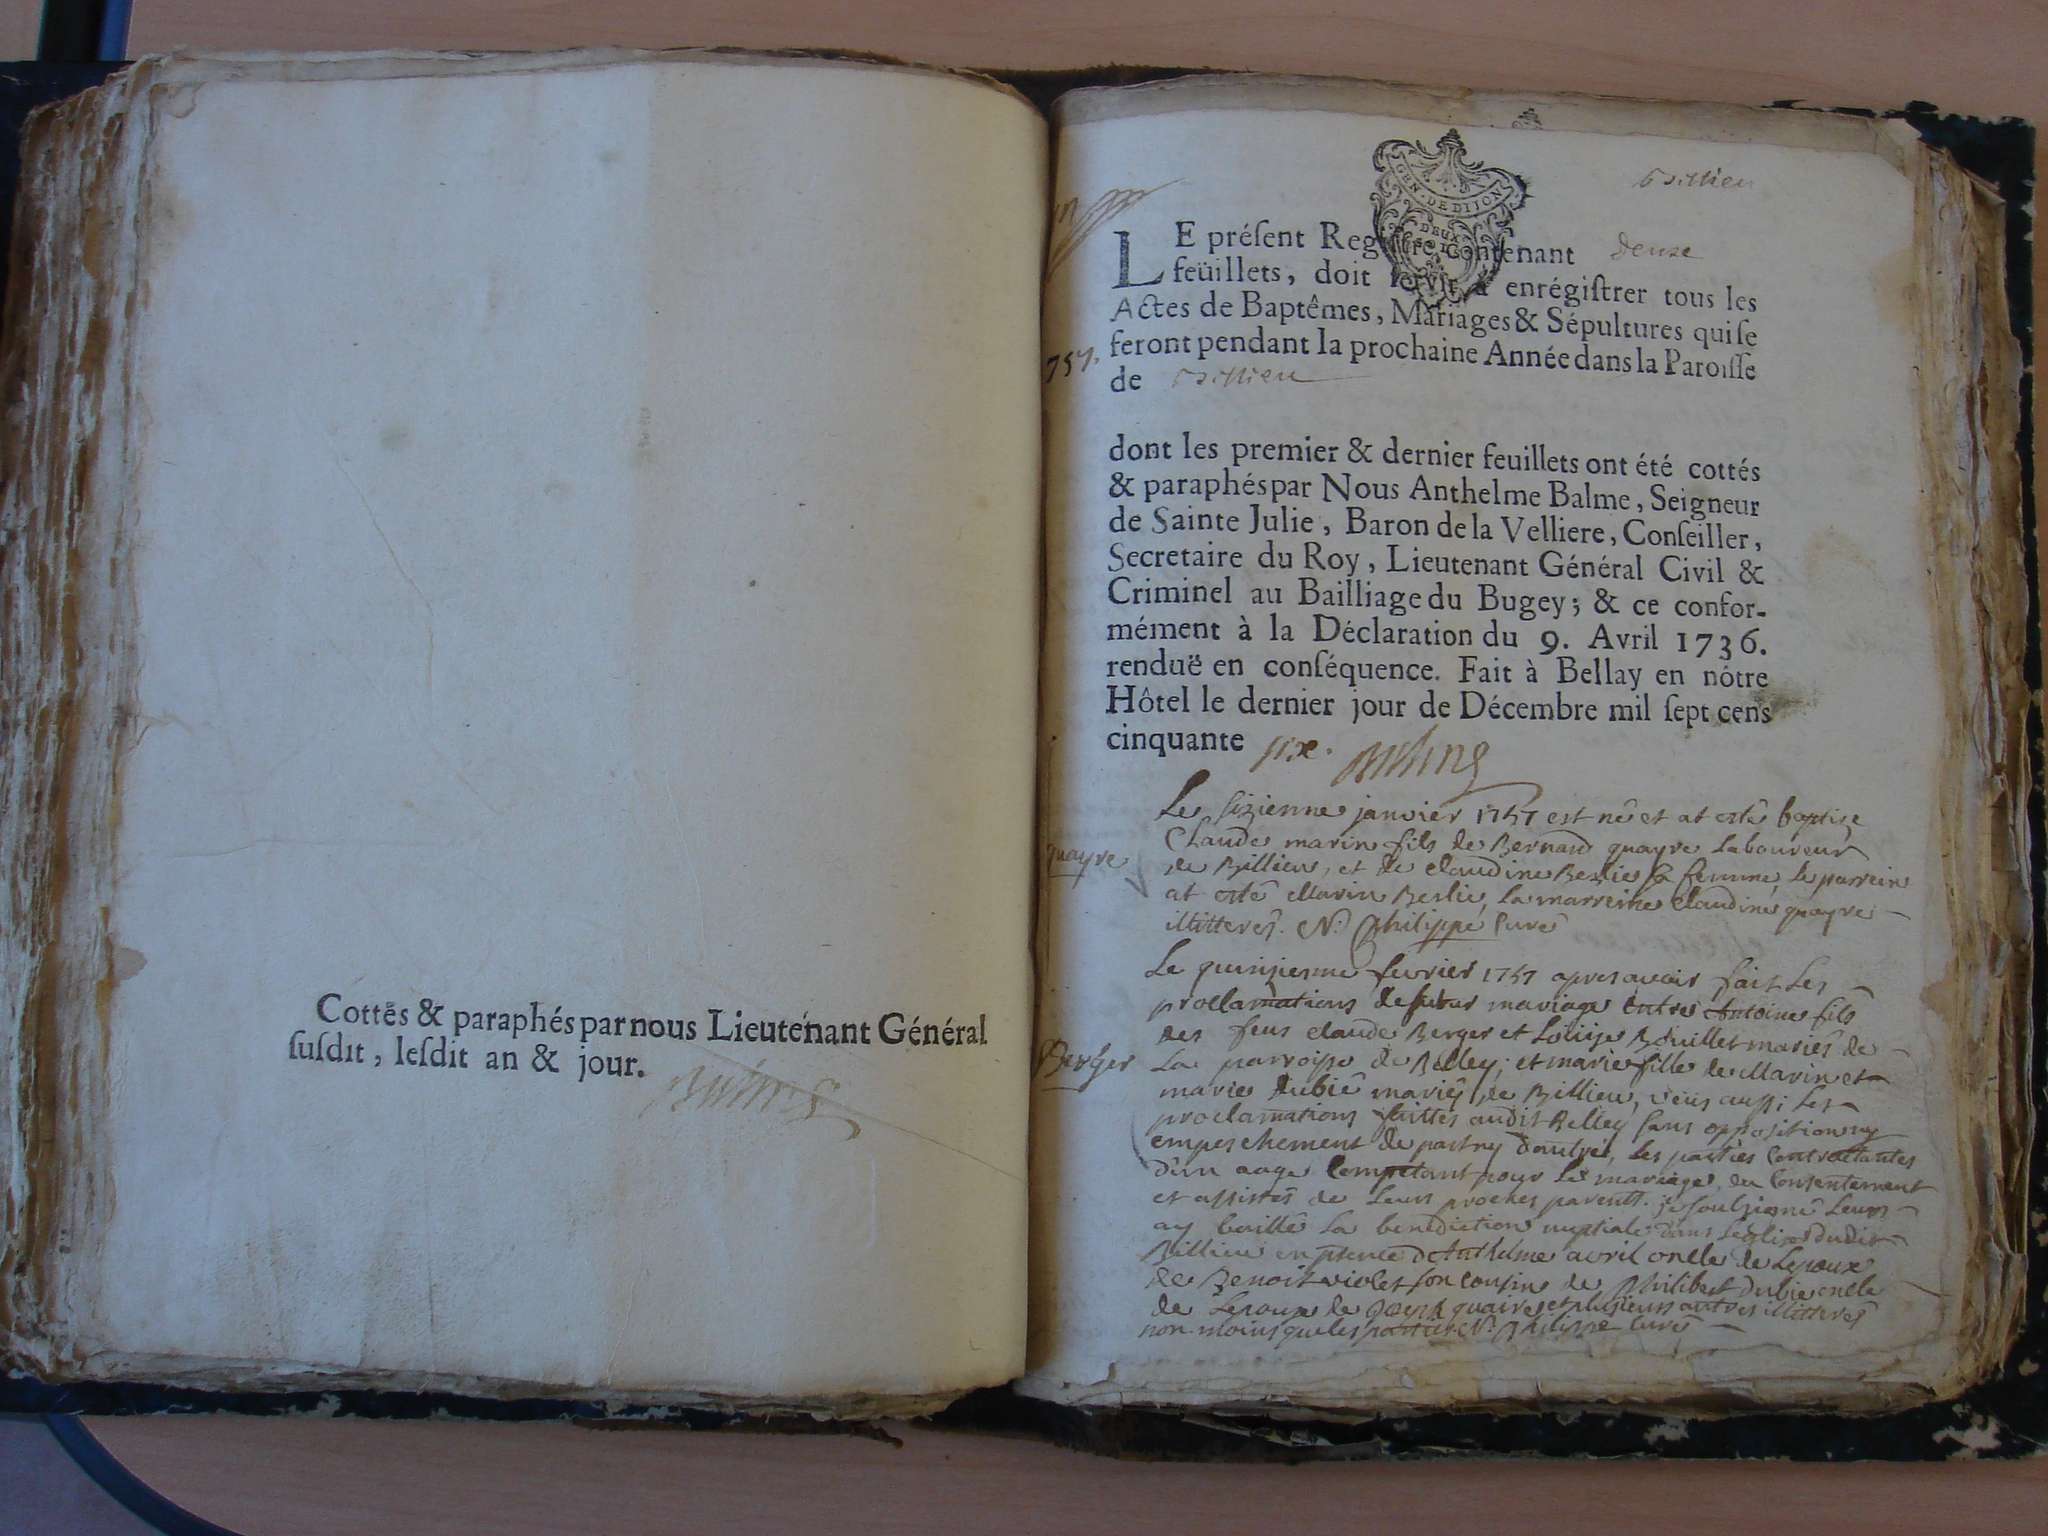 Cottés & paraphés par nous Lieutenant Général
ſuſdit, leſdit an & jour.
Billieu
GEN. DE DIJON
DEUX
LE préſent Regiſtre, contenant deuxe
feüillets, doit ſervir à enrégiſtrer tous les
Actes de Baptêmes, Mariages & Sépultures qui ſe
feront pendant la prochaine Année dans la Paroiſſe
757.
de Billieu
dont les premier & dernier feuillets ont été cottés
& paraphés par Nous Anthelme Balme, Seigneur
de Sainte Julie, Baron de la Velliere, Conſeiller,
Secretaire du Roy, Lieutenant Général Civil &
Criminel au Bailliage du Bugey; & ce confor-
mément à la Déclaration du 9. Avril 1736.
renduë en conſéquence. Fait à Bellay en nôtre
Hôtel le dernier jour de Décembre mil ſept cens
cinquante six.
Le sizienne janvier 1757 est né et at esté baptise
quayre
Claude marin fils de Bernard quayre laboureur
de Billieu, et de claudine Berlie sa femme, le parrein
at esté Marin Berlie, la marreine Claudine quayre
illitteres. N. Philippe Curé
Le quinzienne fevrier 1757 apres avoir fait les
proclamations de futur mariage entre Antoine fils
des feus claude Berger et Louise Bouillet mariés de
Berger
la parroisse de Belley; et marie fille de Marin et
marie Dubié mariés de Billieu, veus aussi les
proclamations faittes audit Belley sans opposition ny
empeschement de part ny d'autre, les parties contractantes
d'un aage Competant pour le mariage, du Consentement
et assistés de leurs proches parents. je soussigné leurs
ay baillé la benediction nuptiale dans l'eglise dudit
Billieu en presence d'Anthelme avril oncle de Lepoux
de Benoit violet son cousin de Philibert Dubie oncle
de Lepouse de Joseph quaire et plusieurs autres illitterés
non moins que les parties. N. Philippe Curé